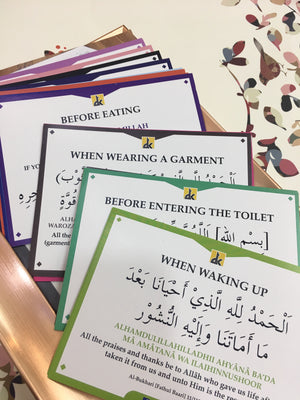 dk
BEFORE EATING
dk
WHEN WEARING A GARMENT
All the
(garment
dk
BEFORE ENTERING THE TOILET
[بِسْمِ اللهِ]
dk
WHEN WAKING UP
الْحَمْدُ لِلَّهِ الَّذِي أَحْيَانَا بَعْدَ
مَا أَمَاتَنَا وَإِلَيْهِ النُّشُوْرُ
ALHAMDULILLAHILLADHII AHYĀNĀ BA'DA
MĀ AMĀTANĀ WA ILAIHINNUSHOOR
All the praises and thanks be to Allāh who gave us life af
taken it from us and unto Him is the re
Al-Bukhari [Fathul Baari]